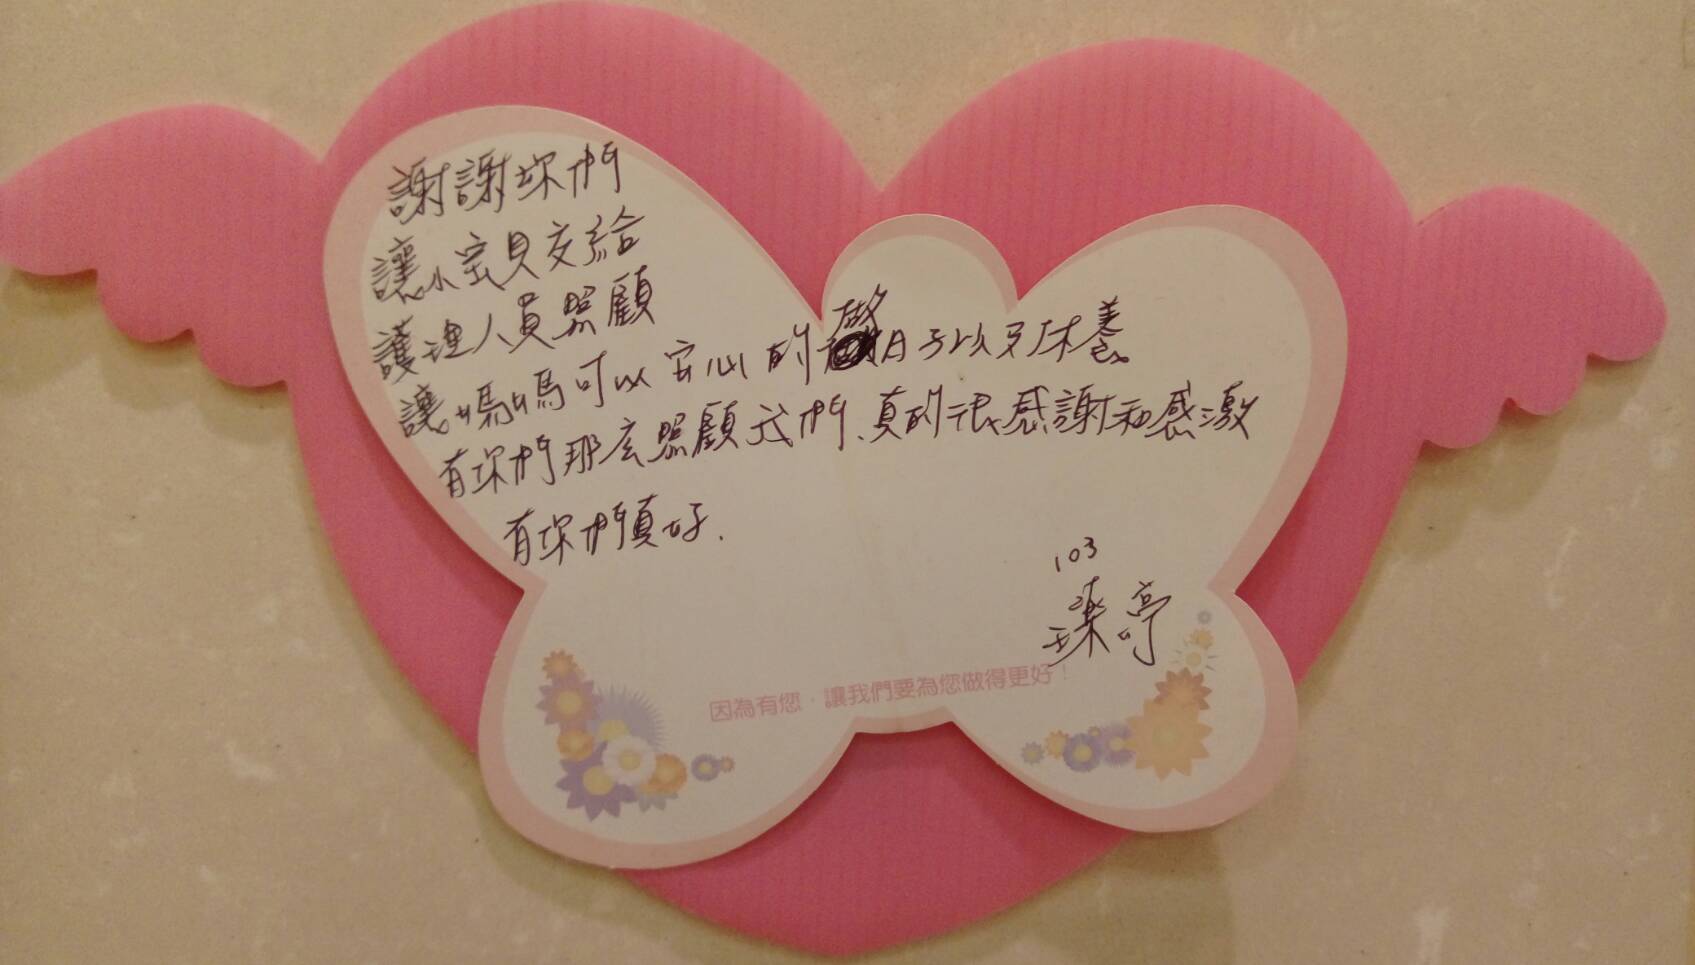 謝謝妳們
讓小寶貝交給
護理人員照顧
讓媽媽可以安心的做月子以及休養
有妳們那麼照顧我們、真的很感謝和感激
有妳們真好.
103
瑧亭
因為有您，讓我們要為您做得更好！